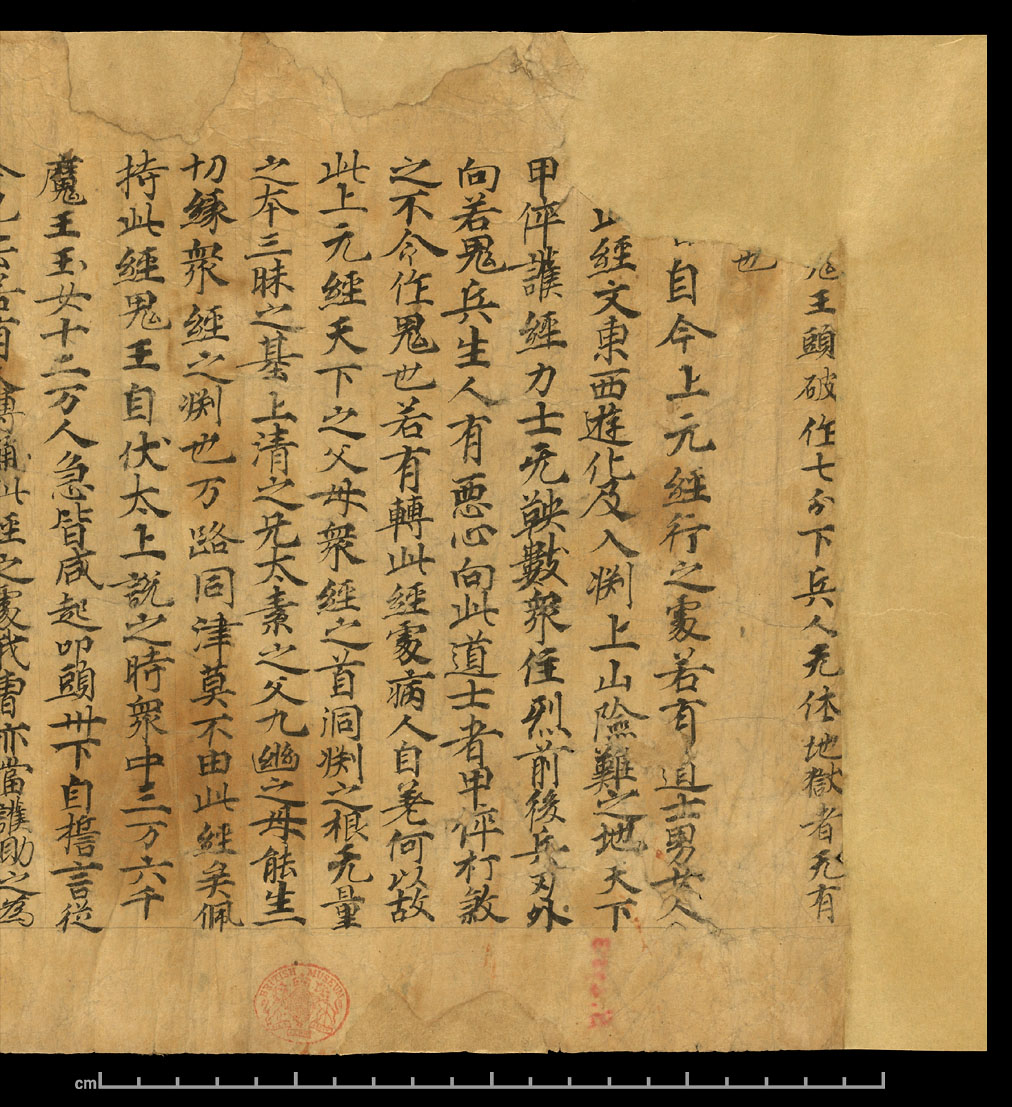 鬼王頭破作七分下兵人无住地獄者无有
也
自今上元經行之處若有道士男女人
經文東西遊化及入渊上山險難之地天下
甲倅護經力士无鞅數衆住烈前後兵刃外
向若鬼兵生人有悪心向此道士者甲倅打煞
之不令作鬼也若有轉此經處病人自差何以故
此上元經天下之父母衆經之首洞渊之根无量
之本三昧之基上清之兄太素之父九幽之母能生
切緣衆經之渊也万路同津莫不由此經矣佩
持此經鬼王自伏太上説之時衆中三万六千
魔王玉女十二万人急皆咸起叩頭卅下自誓言從
此經之處我曹亦當護助之為
BRITISH MUSEUM
cm